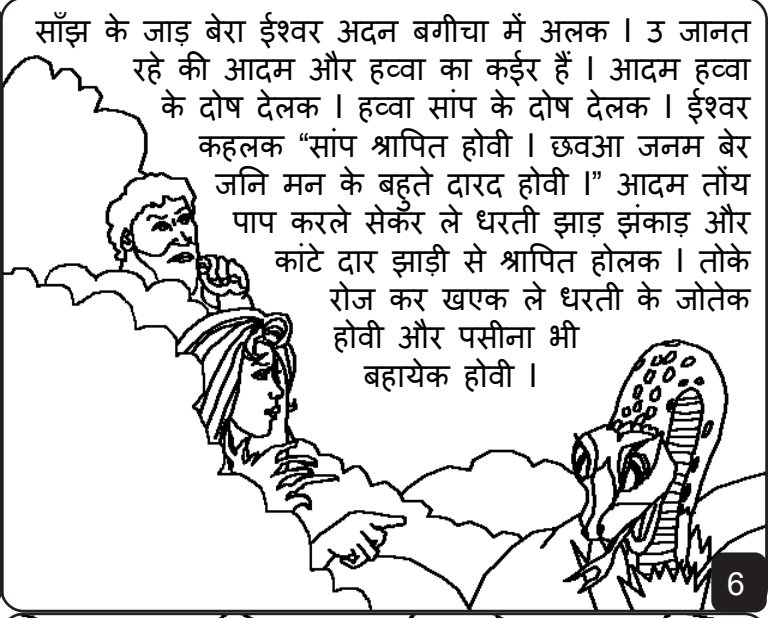 साँझ के जाड़ बेरा ईश्वर अदन बगीचा में अलक । उ जानत
रहे की आदम और हव्वा का कईर हैं । आदम हव्वा
के दोष देलक । हव्वा सांप के दोष देलक । ईश्वर
कहलक “सांप श्रापित होवी । छवआ जनम बेर
जनि मन के बहुते दारद होवी ।” आदम तोंय
पाप करले सेकर ले धरती झाड़ झंकाड़ और
कांटे दार झाड़ी से श्रापित होलक । तोके
रोज कर खएक ले धरती के जोतेक
होवी और पसीना भी
बहायेक होवी ।
6